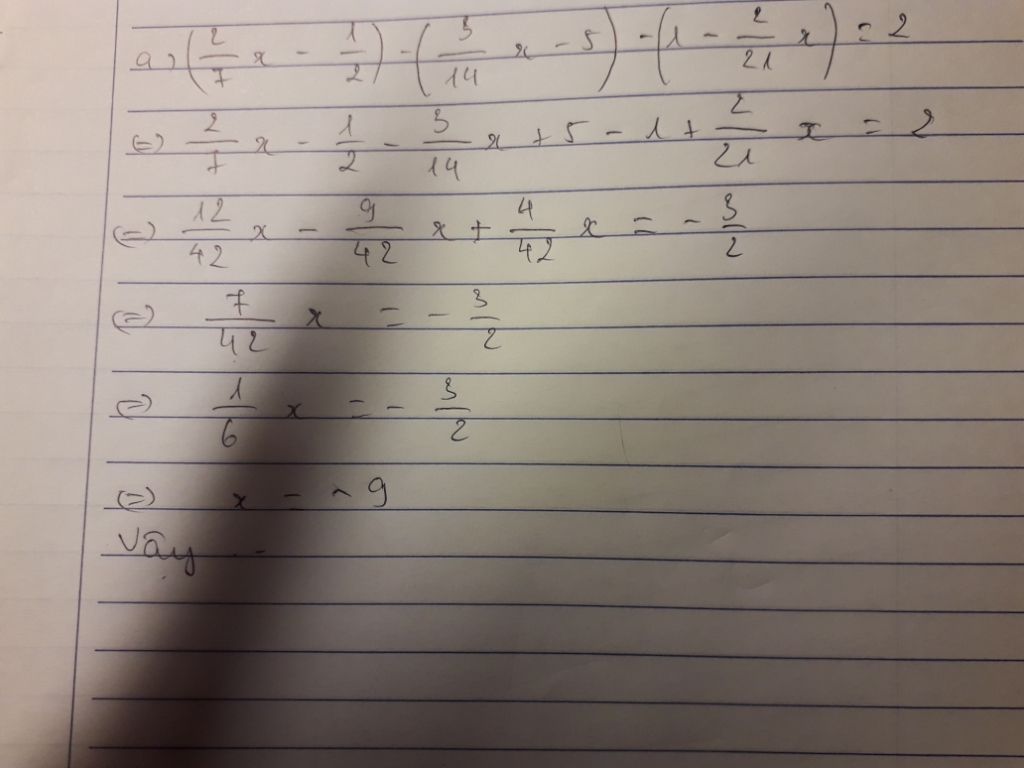 a) (2/7 x - 1/2) - (3/14 x - 5) - (1 - 2/21 x) = 2
(=) 2/7 x - 1/2 - 3/14 x + 5 - 1 + 2/21 x = 2
(=) 12/42 x - 9/42 x + 4/42 x = - 3/2
(=) 7/42 x = - 3/2
(=) 1/6 x = - 3/2
(=) x = - 9
Vậy ..